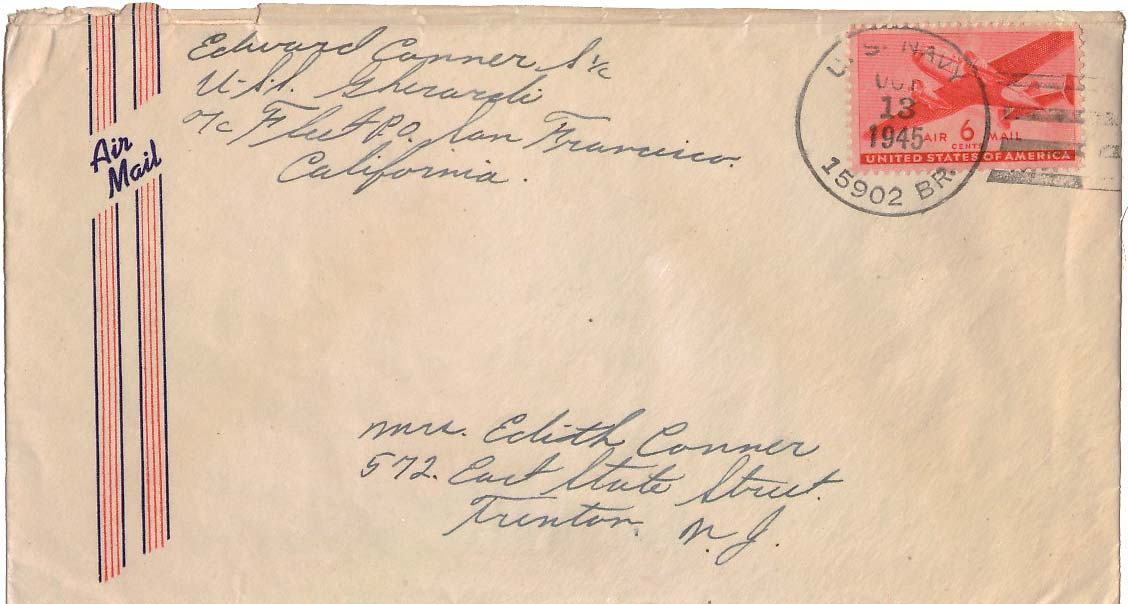 Edward Conner S 1/c
U.S.S. Gherardi
c/o Fleet P.O. San Francisco.
California.
Air
Mail
U. S. NAVY
OCT
13
1945
15902 BR.
AIR 6 MAIL
CENTS
UNITED STATES OF AMERICA
Mrs. Edith Conner
572. East State Street.
Trenton, N.J.